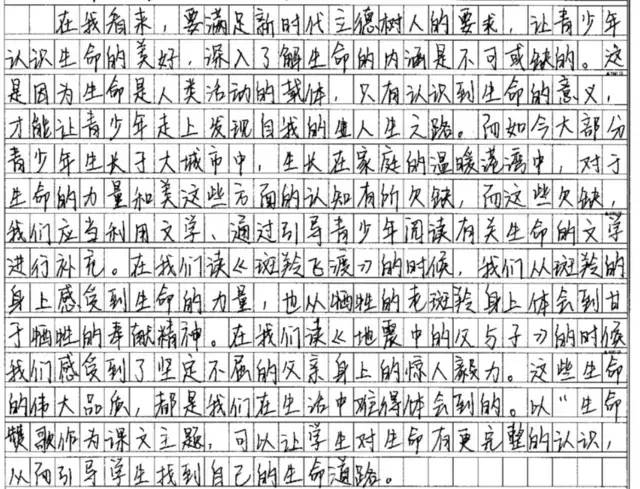 在我看来，要满足新时代立德树人的要求，让青少年
认识生命的美好，深入了解生命的内涵是不可或缺的。这
是因为生命是人类活动的载体，只有认识到生命的意义，
才能让青少年走上发现自我的人生之路。而如今大部分
青少年生长于大城市中，生长在家庭的温暖港湾中，对于
生命的力量和美这些方面的认知有所欠缺，而这些欠缺，
我们应当利用文学、通过引导青少年阅读有关生命的文学
进行补充。在我们读《斑羚飞渡》的时候，我们从斑羚的
身上感受到生命的力量，也从牺牲的老斑羚身上体会到甘
于牺牲的奉献精神。在我们读《地震中的父与子》的时候
我们感受到了坚定不屈的父亲身上的惊人毅力。这些生命
的伟大品质，都是我们在生活中难得体会到的。以“生命
赞歌作为课文主题，可以让学生对生命有更完整的认识，
从而引导学生找到自己的生命道路。